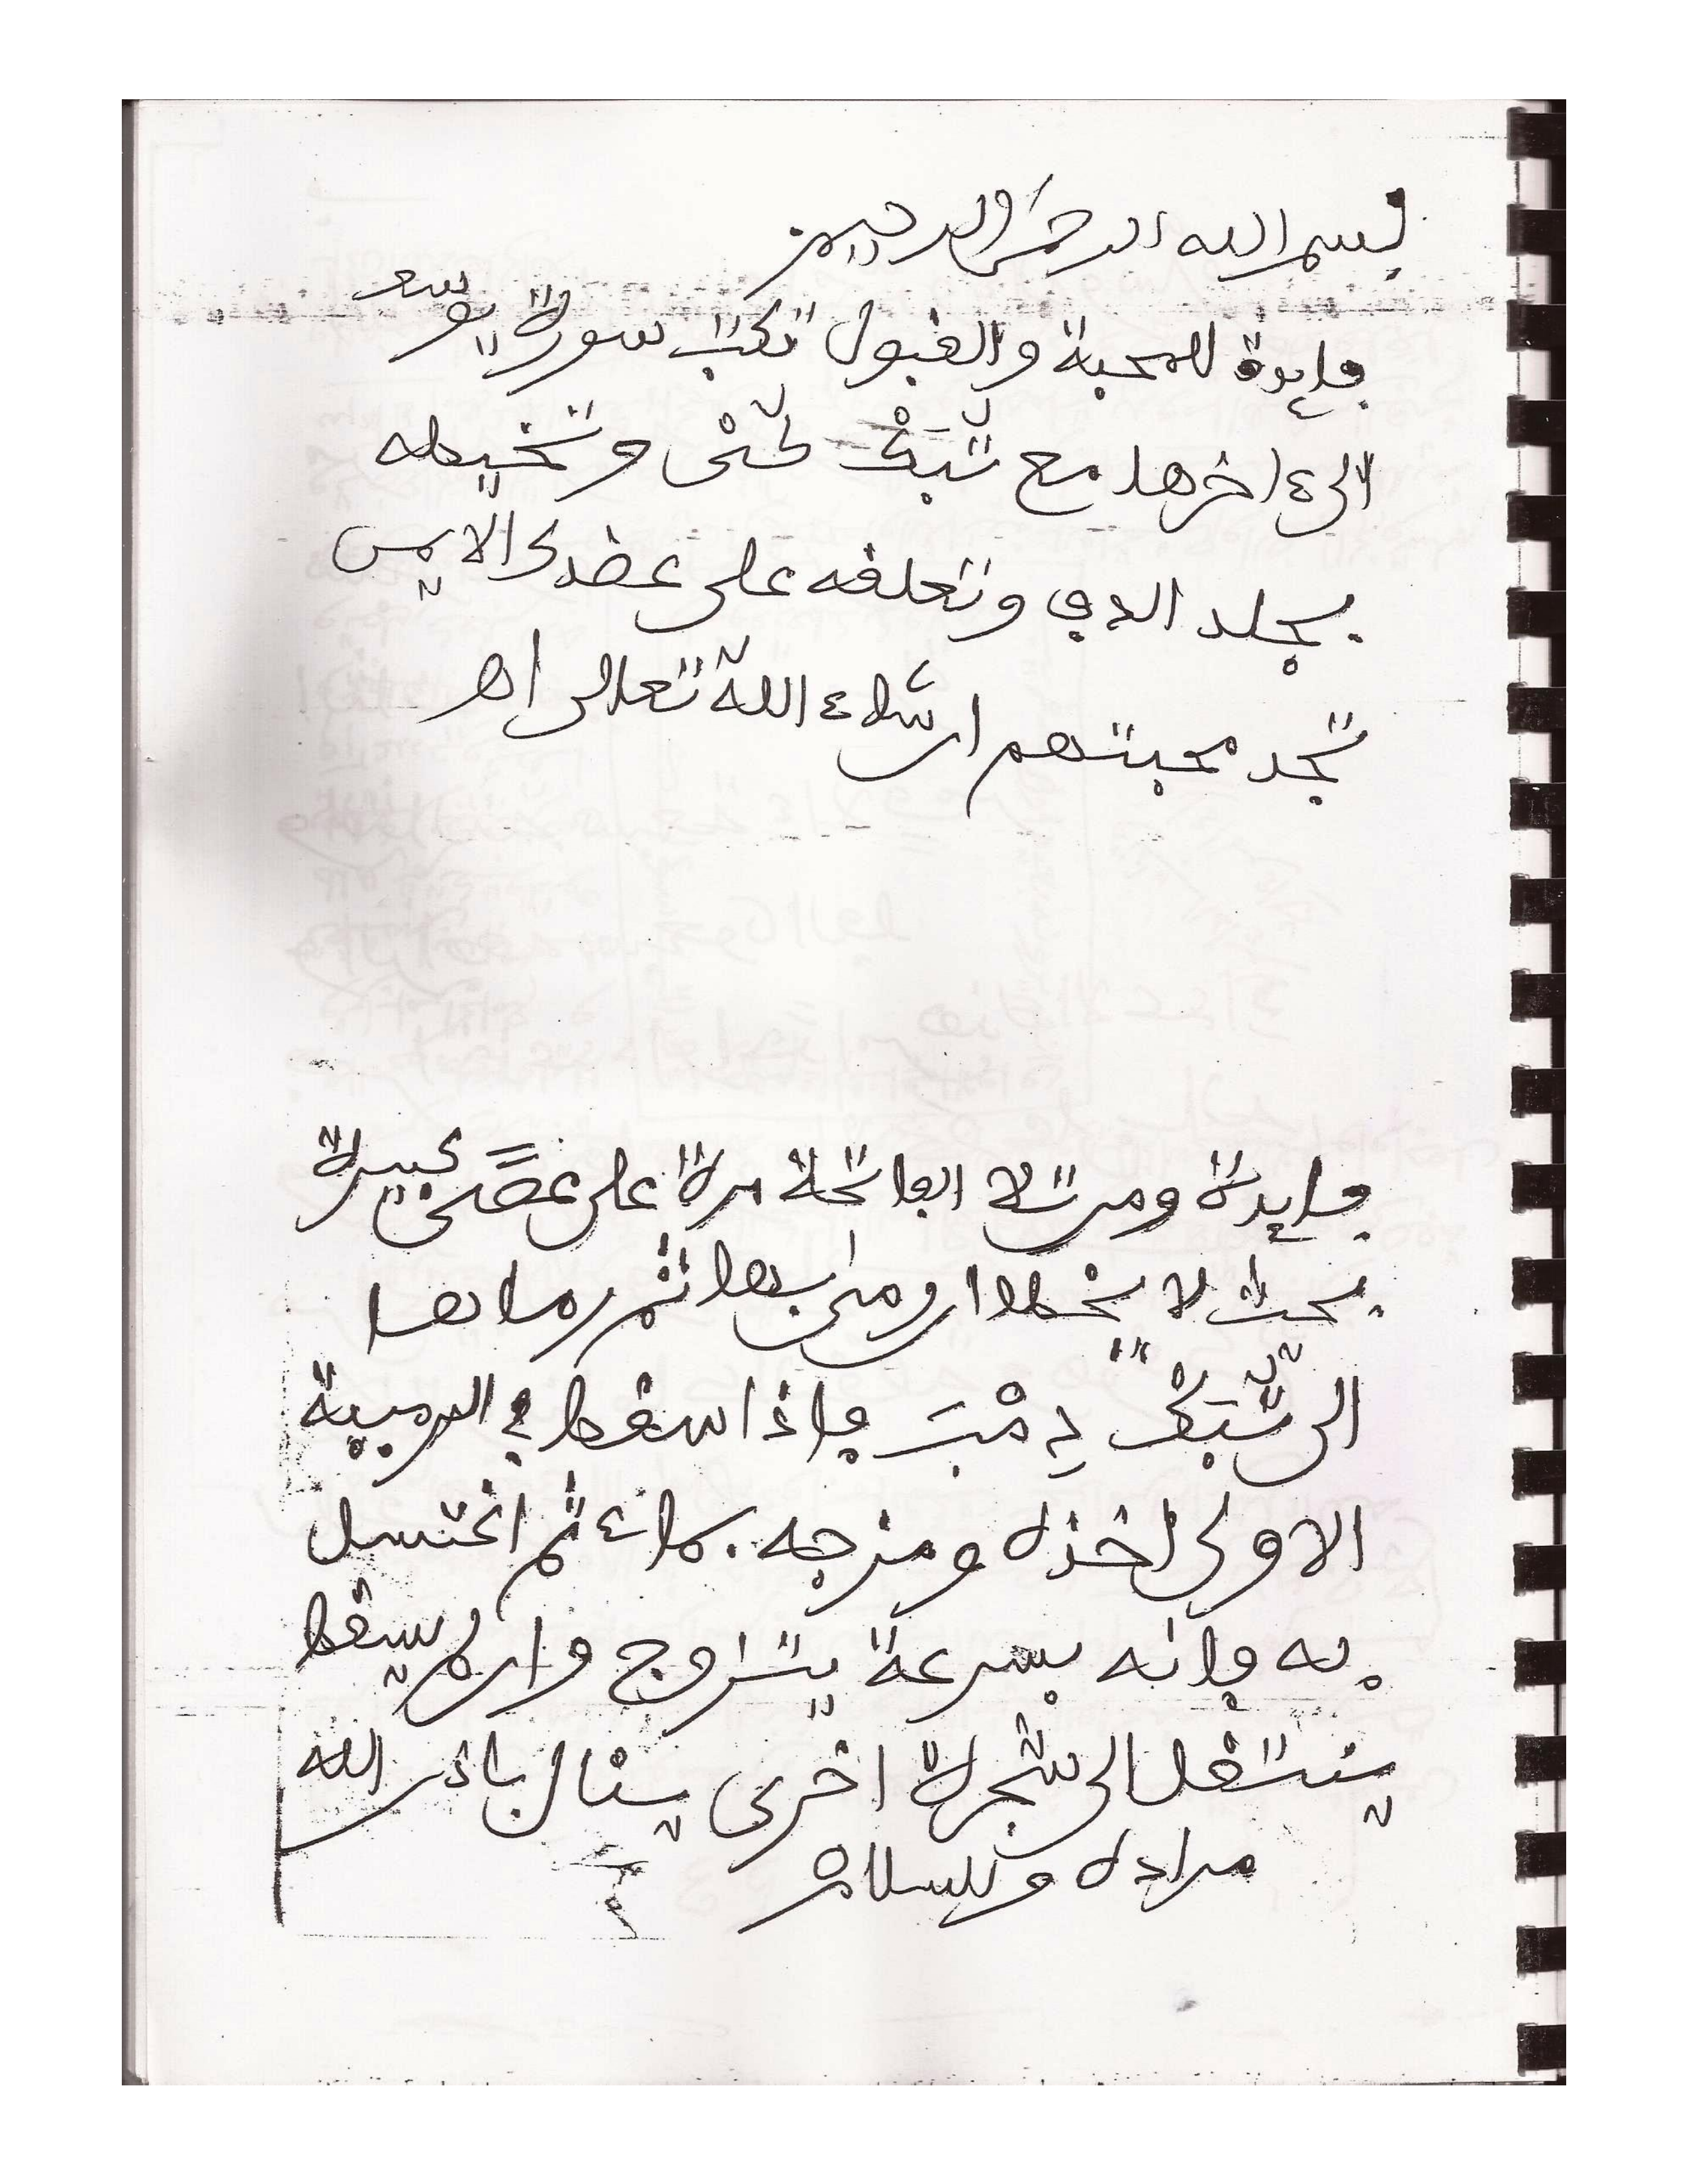 بسم الله الرحمن الرحيم
فايدة للمحبة والقبول تكتب سورة يوسف
الى ءاخرها مع تبك لحتى وتخيطه
بجلد الدي وتعلقه على عضدك الايمن
تجد محبتهم ان شاء الله تعالى اهـ
فايدة ومن تلا الفاتحة مرة على عصى كبيرة
بحيث لا يخطا ورمى بها ثم رماها
الى شبك دمب فاذا سقط في الرمية
الاولى اخذه ومزجه بماء ثم اغتسل
به فانه بسرعة يتزوج وان لم يسقط
ينتقل الى شجرة اخرى ينال باذن الله
مراده والسلام